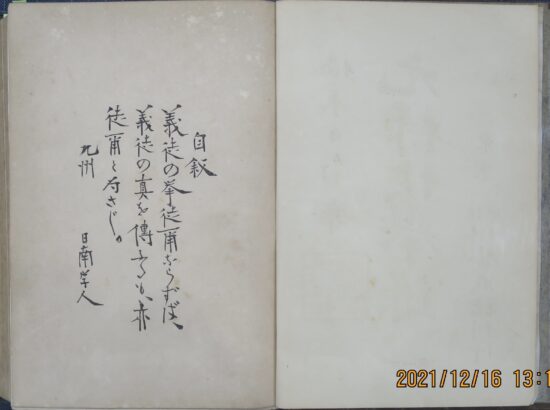 自叙
義徒の挙徒爾ならずば、
義徒の真を傳ふるも、亦
徒爾と為さじ。
九州
日南学人
2021/12/16 13:1